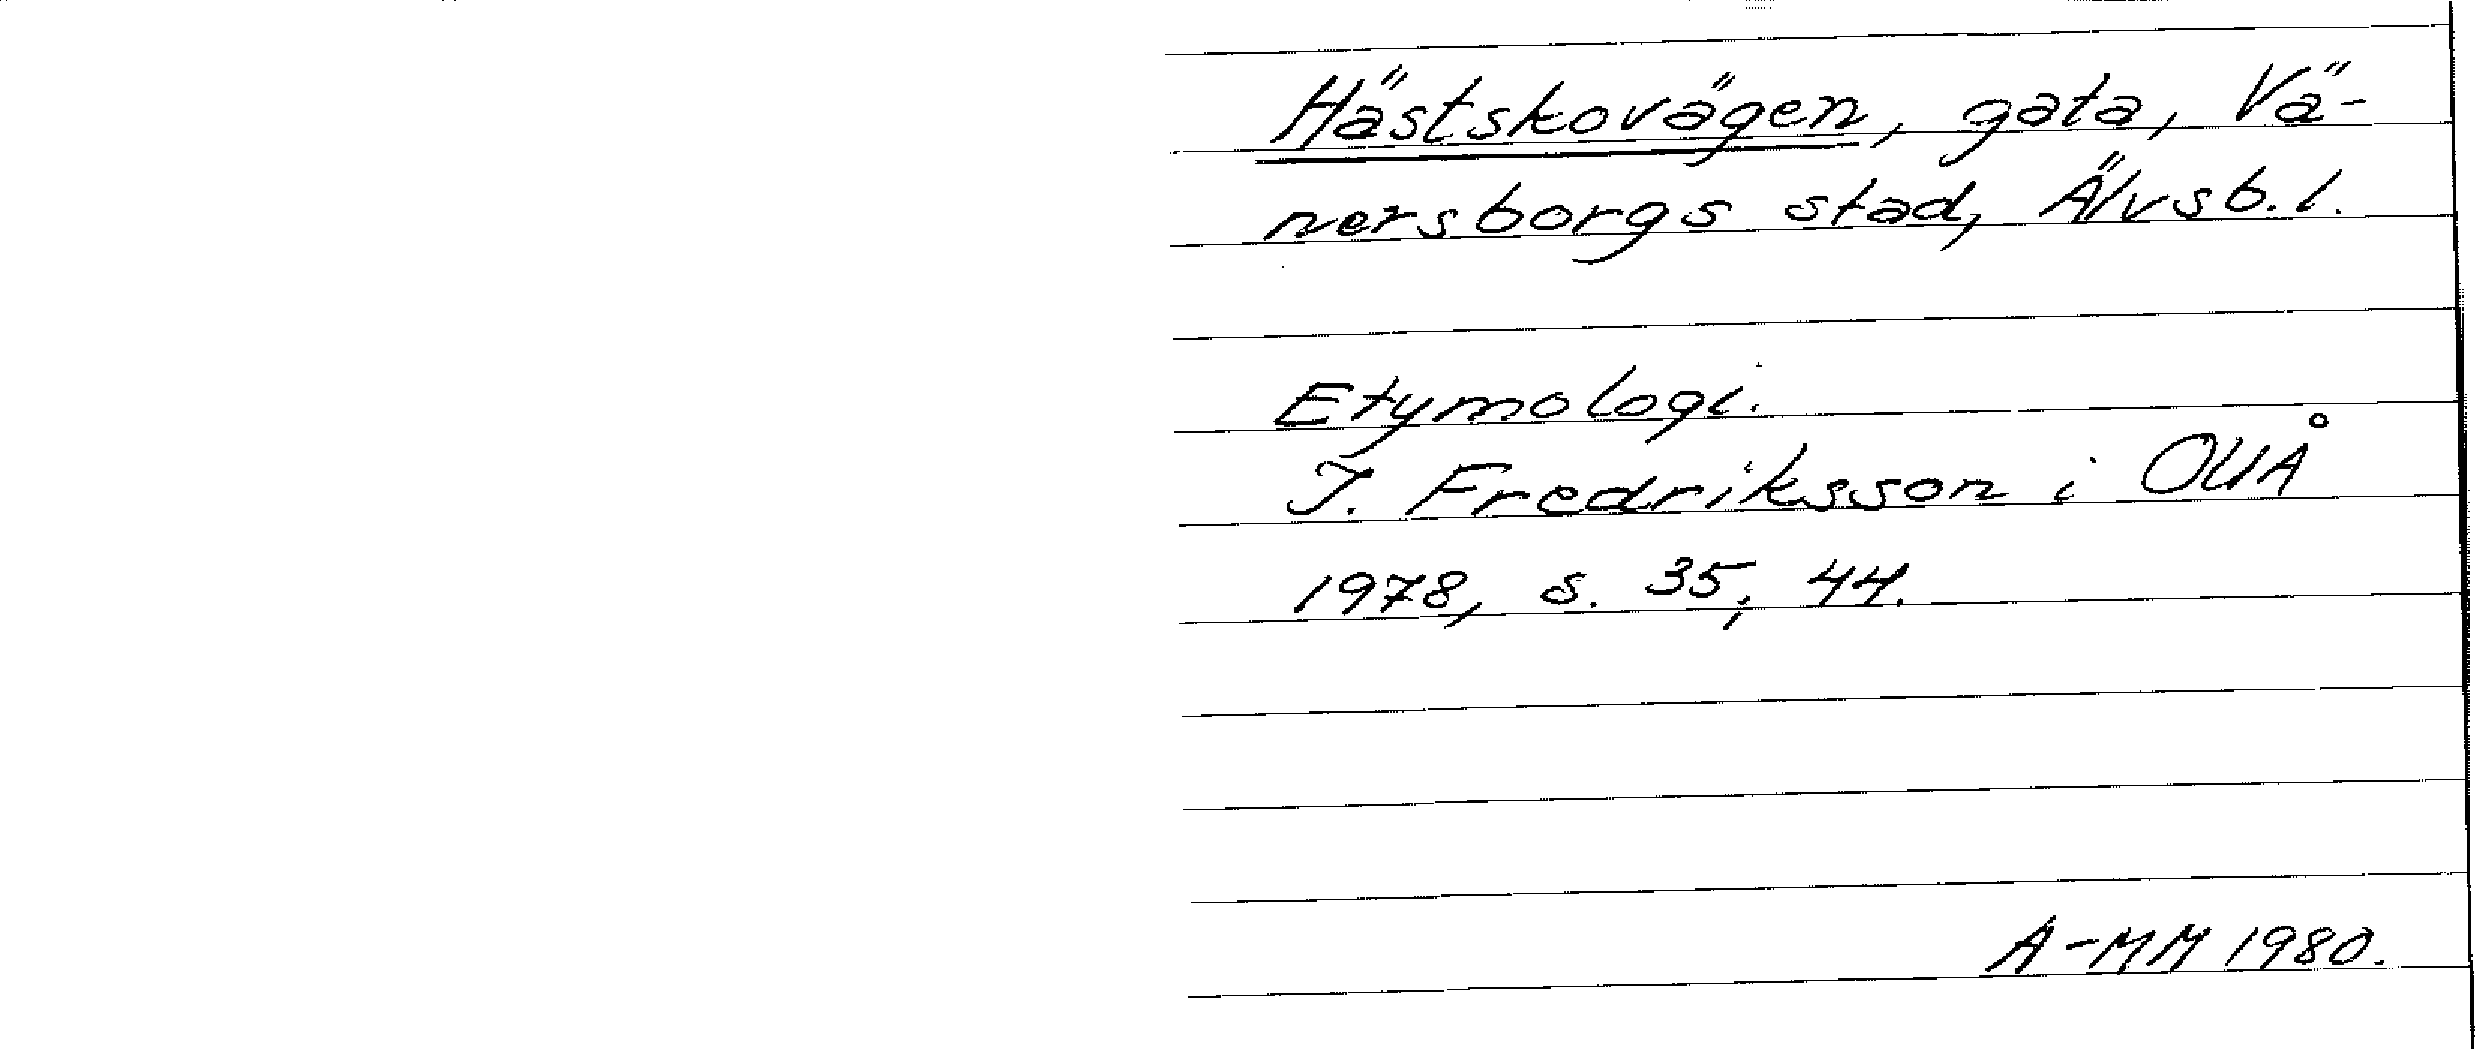 Hästskovägen, gata, Vä-
nersborgs stad, Älvsb. l.
Etymologi.
I. Fredriksson i OUÅ
1978, s. 35, 44.
A-MM 1980.